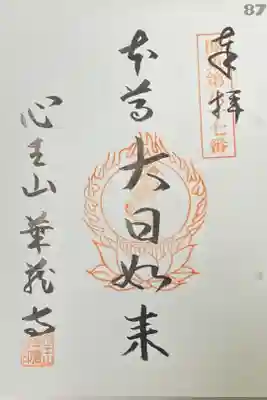 87
奉拝
七番
本尊大日如来
心王山華蔵寺